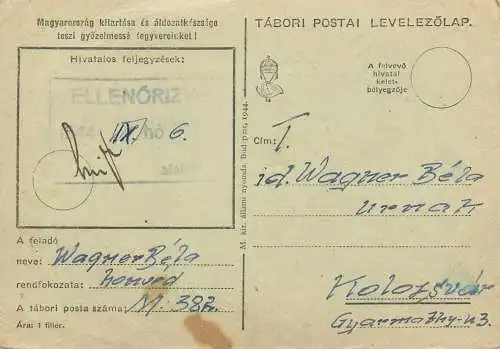 Magyarország kitartása és áldozatkészsége
teszi győzelmessé fegyvereinket!
Hivatalos feljegyzések:
ELLENŐRIZ
IX. 6.
A feladó
neve: Wagner Béla
rendfokozata: honvéd
A tábori posta száma: M. 382.
Ára: 1 fillér.
M. kir. állami nyomda. Budapest, 1944.
TÁBORI POSTAI LEVELEZŐLAP.
A felvevő
hivatal
kelet-
bélyegzője
Cím: T.
id. Wagner Béla
urnak
Kolozsvár
Gyarmathy-u 3.